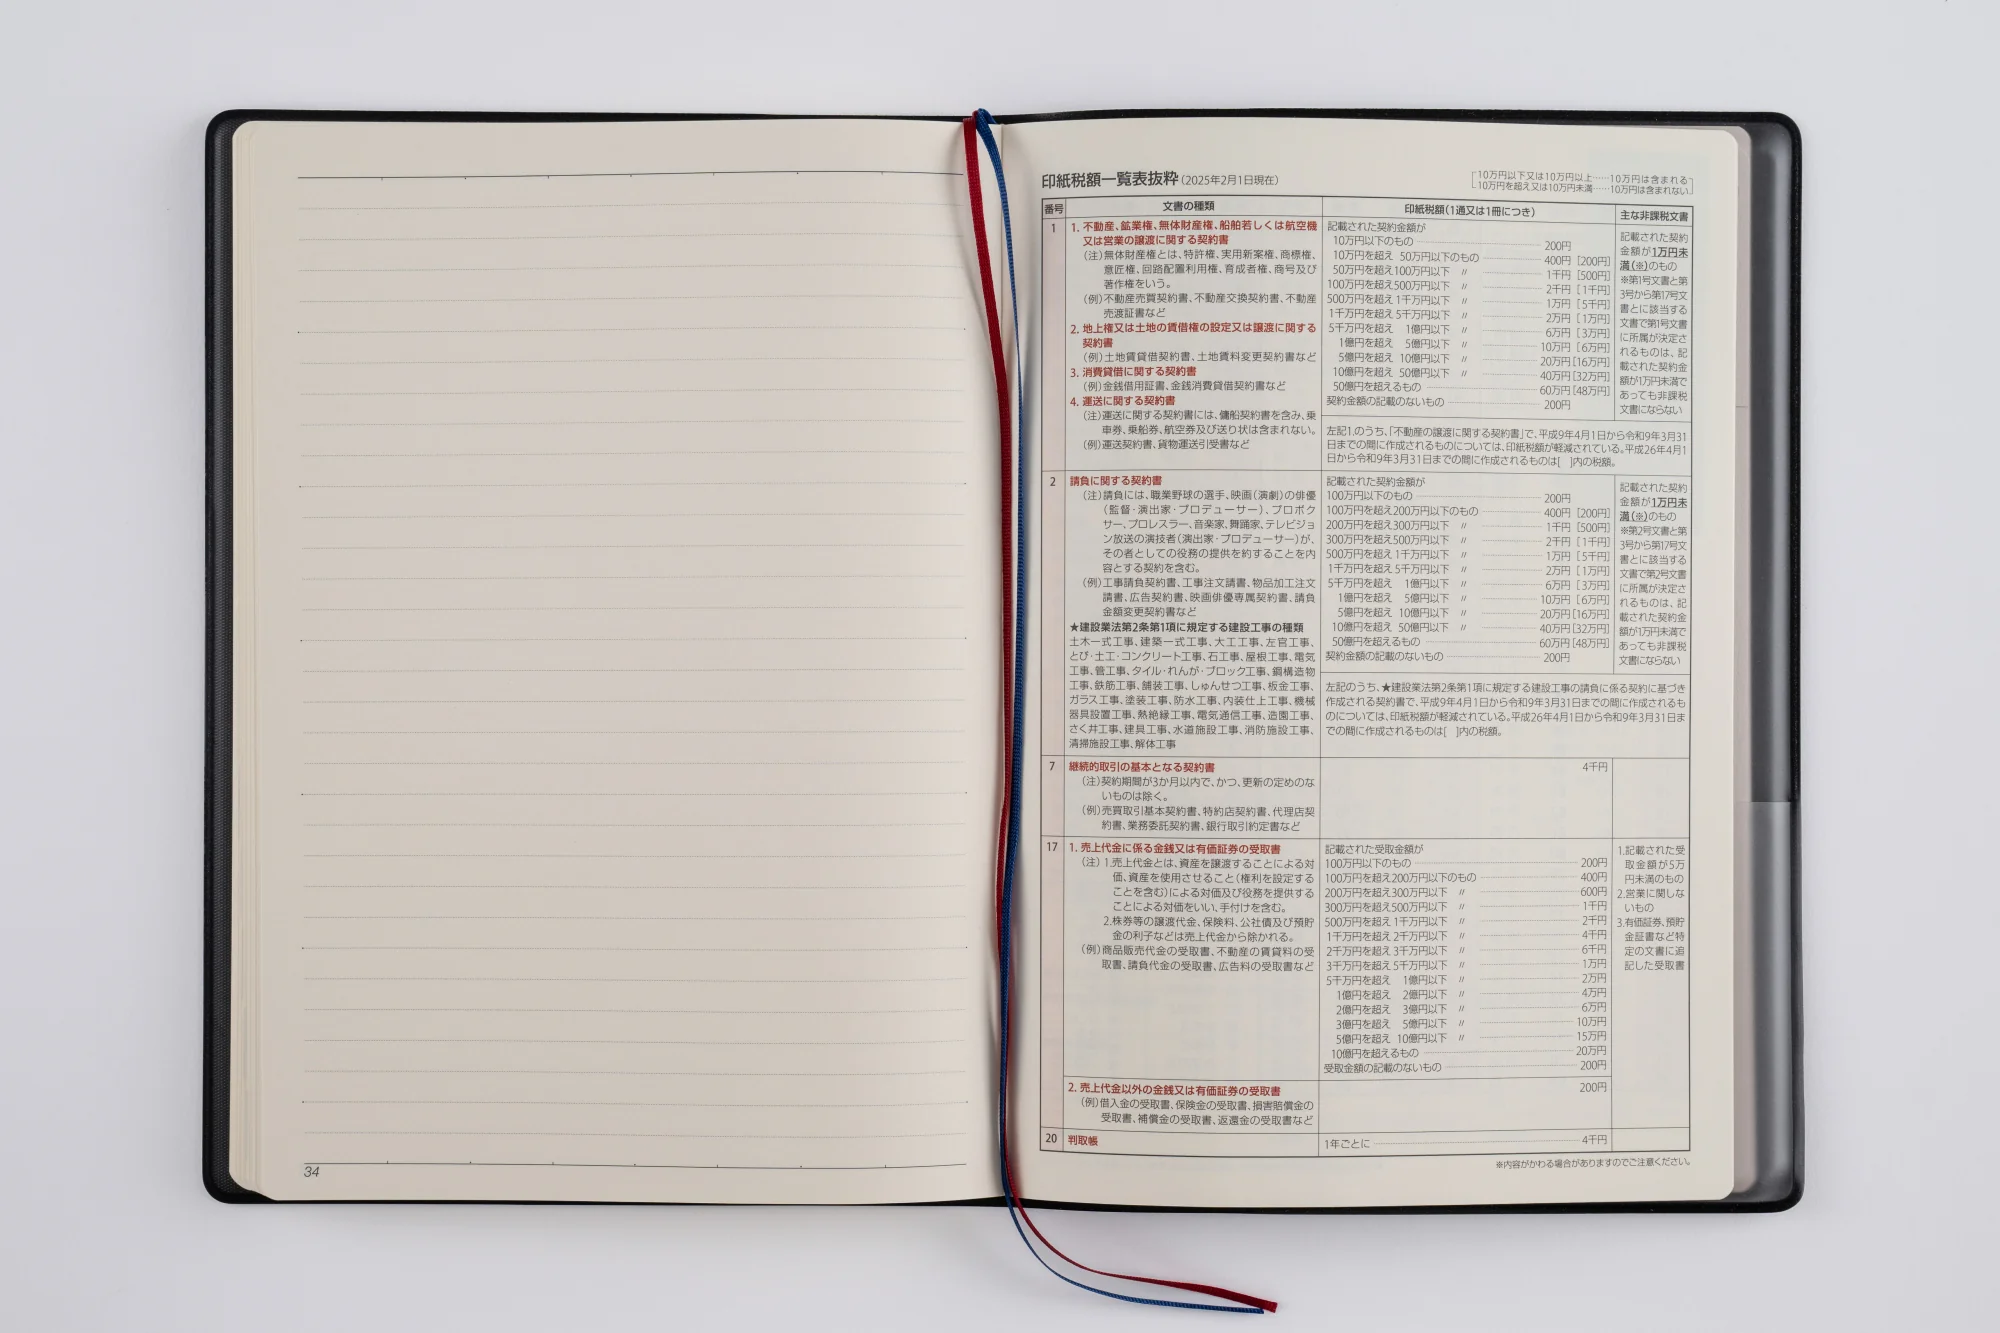 34
印紙税額一覧表抜粋(2025年2月1日現在)
10万円以下又は10万円以上……10万円は含まれる
10万円を超え又は10万円未満……10万円は含まれない
番号 文書の種類 印紙税額(1通又は1冊につき) 主な非課税文書
1
1. 不動産、鉱業権、無体財産権、船舶若しくは航空機
又は営業の譲渡に関する契約書
(注)無体財産権とは、特許権、実用新案権、商標権、
意匠権、回路配置利用権、育成者権、商号及び
著作権をいう。
(例)不動産売買契約書、不動産交換契約書、不動産
売渡証書など
2. 地上権又は土地の賃借権の設定又は譲渡に関する
契約書
(例)土地賃貸借契約書、土地賃料変更契約書など
3. 消費貸借に関する契約書
(例)金銭借用証書、金銭消費貸借契約書など
4. 運送に関する契約書
(注)運送に関する契約書には、傭船契約書を含み、乗
車券、乗船券、航空券及び送り状は含まれない。
(例)運送契約書、貨物運送引受書など
記載された契約金額が
10万円以下のもの 200円
10万円を超え 50万円以下のもの 400円 [200円]
50万円を超え100万円以下 〃 1千円 [500円]
100万円を超え500万円以下 〃 2千円 [1千円]
500万円を超え1千万円以下 〃 1万円 [5千円]
1千万円を超え5千万円以下 〃 2万円 [1万円]
5千万円を超え 1億円以下 〃 6万円 [3万円]
1億円を超え 5億円以下 〃 10万円 [6万円]
5億円を超え 10億円以下 〃 20万円[16万円]
10億円を超え 50億円以下 〃 40万円[32万円]
50億円を超えるもの 60万円[48万円]
契約金額の記載のないもの 200円
左記1.のうち、「不動産の譲渡に関する契約書」で、平成9年4月1日から令和9年3月31
日までの間に作成されるものについては、印紙税額が軽減されている。平成26年4月1
日から令和9年3月31日までの間に作成されるものは[ ]内の税額。
記載された契約
金額が1万円未
満(※)のもの
※第1号文書と第
3号から第17号文
書とに該当する
文書で第1号文書
に所属が決定さ
れるものは、記
載された契約金
額が1万円未満で
あっても非課税
文書にならない
2
請負に関する契約書
(注)請負には、職業野球の選手、映画(演劇)の俳優
(監督・演出家・プロデューサー)、プロボク
サー、プロレスラー、音楽家、舞踊家、テレビジョ
ン放送の演技者(演出家・プロデューサー)が、
その者としての役務の提供を約することを内
容とする契約を含む。
(例)工事請負契約書、工事注文請書、物品加工注文
請書、広告契約書、映画俳優専属契約書、請負
金額変更契約書など
★建設業法第2条第1項に規定する建設工事の種類
土木一式工事、建築一式工事、大工工事、左官工事、
とび・土工・コンクリート工事、石工事、屋根工事、電気
工事、管工事、タイル・れんが・ブロック工事、鋼構造物
工事、鉄筋工事、舗装工事、しゅんせつ工事、板金工事、
ガラス工事、塗装工事、防水工事、内装仕上工事、機械
器具設置工事、熱絶縁工事、電気通信工事、造園工事、
さく井工事、建具工事、水道施設工事、消防施設工事、
清掃施設工事、解体工事
記載された契約金額が
100万円以下のもの 200円
100万円を超え200万円以下のもの 400円 [200円]
200万円を超え300万円以下 〃 1千円 [500円]
300万円を超え500万円以下 〃 2千円 [1千円]
500万円を超え1千万円以下 〃 1万円 [5千円]
1千万円を超え5千万円以下 〃 2万円 [1万円]
5千万円を超え 1億円以下 〃 6万円 [3万円]
1億円を超え 5億円以下 〃 10万円 [6万円]
5億円を超え 10億円以下 〃 20万円[16万円]
10億円を超え 50億円以下 〃 40万円[32万円]
50億円を超えるもの 60万円[48万円]
契約金額の記載のないもの 200円
左記のうち、★建設業法第2条第1項に規定する建設工事の請負に係る契約に基づき
作成される契約書で、平成9年4月1日から令和9年3月31日までの間に作成されるも
のについては、印紙税額が軽減されている。平成26年4月1日から令和9年3月31日ま
での間に作成されるものは[ ]内の税額。
記載された契約
金額が1万円未
満(※)のもの
※第2号文書と第
3号から第17号文
書とに該当する
文書で第2号文書
に所属が決定さ
れるものは、記
載された契約金
額が1万円未満で
あっても非課税
文書にならない
7
継続的取引の基本となる契約書
(注)契約期間が3か月以内で、かつ、更新の定めのな
いものは除く。
(例)売買取引基本契約書、特約店契約書、代理店契
約書、業務委託契約書、銀行取引約定書など
4千円
17
1. 売上代金に係る金銭又は有価証券の受取書
(注) 1.売上代金とは、資産を譲渡することによる対
価、資産を使用させること(権利を設定する
ことを含む)による対価及び役務を提供する
ことによる対価をいい、手付けを含む。
2.株券等の譲渡代金、保険料、公社債及び預貯
金の利子などは売上代金から除かれる。
(例)商品販売代金の受取書、不動産の賃貸料の受
取書、請負代金の受取書、広告料の受取書など
記載された受取金額が
100万円以下のもの 200円
100万円を超え200万円以下のもの 400円
200万円を超え300万円以下 〃 600円
300万円を超え500万円以下 〃 1千円
500万円を超え1千万円以下 〃 2千円
1千万円を超え2千万円以下 〃 4千円
2千万円を超え3千万円以下 〃 6千円
3千万円を超え5千万円以下 〃 1万円
5千万円を超え 1億円以下 〃 2万円
1億円を超え 2億円以下 〃 4万円
2億円を超え 3億円以下 〃 6万円
3億円を超え 5億円以下 〃 10万円
5億円を超え 10億円以下 〃 15万円
10億円を超えるもの 20万円
受取金額の記載のないもの 200円
1.記載された受
取金額が5万
円未満のもの
2.営業に関しな
いもの
3.有価証券、預貯
金証書など特
定の文書に追
記した受取書
2. 売上代金以外の金銭又は有価証券の受取書
(例)借入金の受取書、保険金の受取書、損害賠償金の
受取書、補償金の受取書、返還金の受取書など
200円
20 判取帳 1年ごとに 4千円
※内容がかわる場合がありますのでご注意ください。